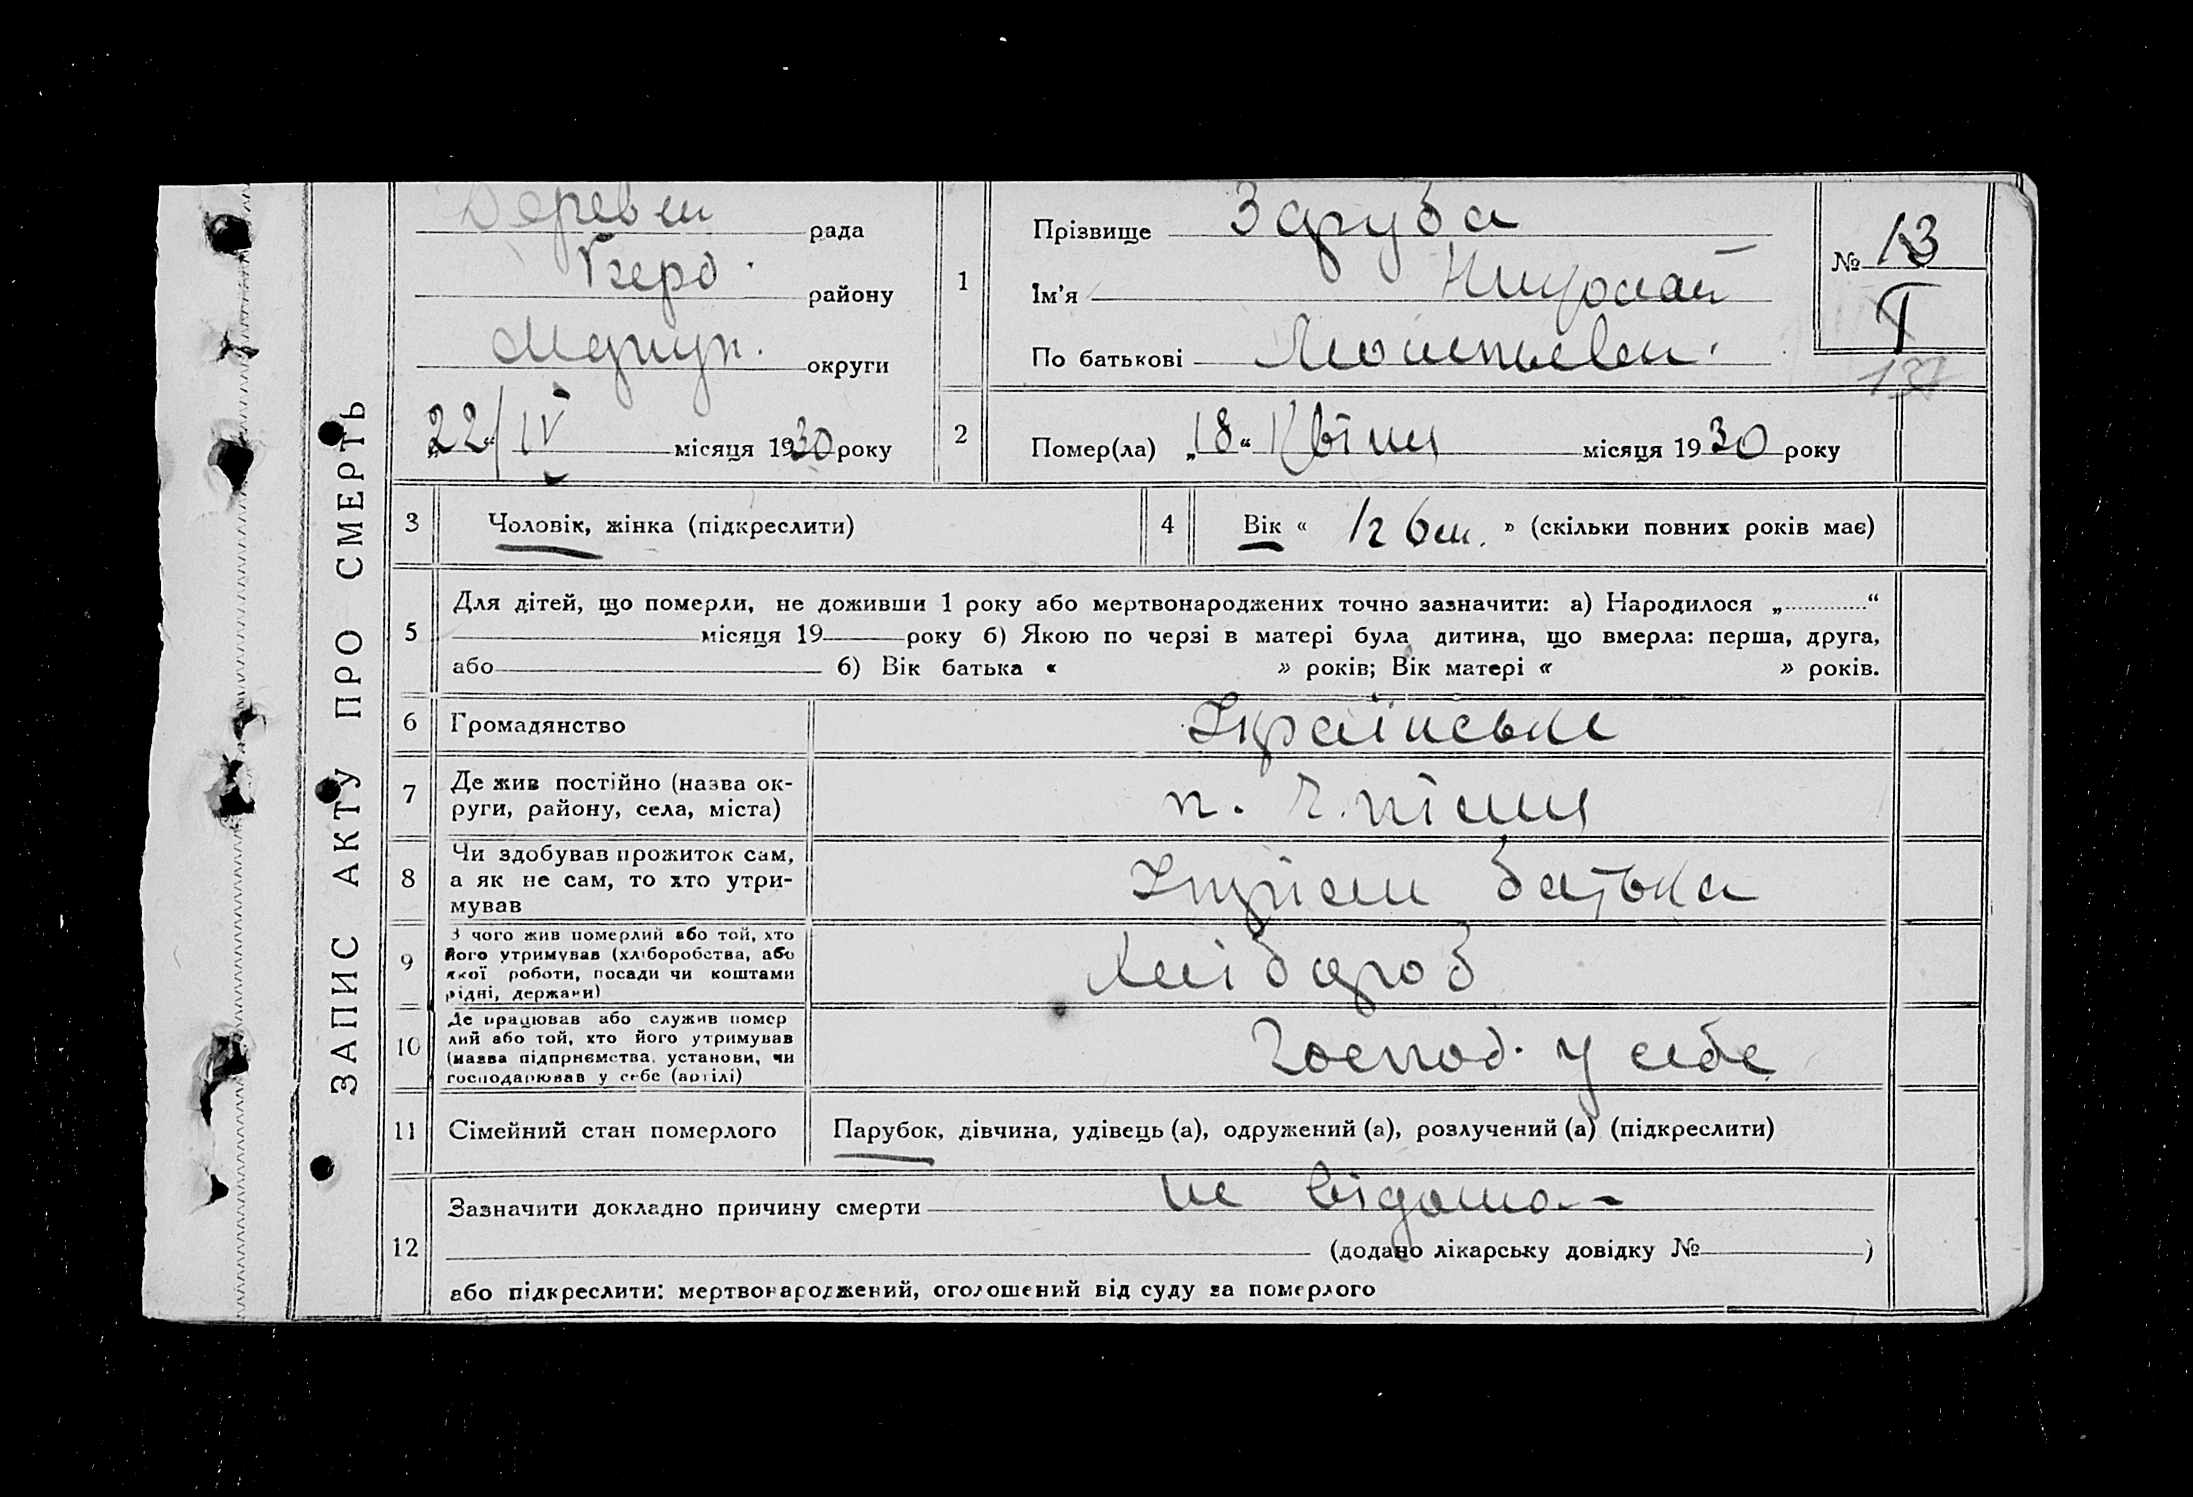 ЗАПИС АКТУ ПРО СМЕРТЬ
рада
району
Мариуп. округи
22/IV місяця 1930 року
1
Прізвище Заруба
Ім'я Николай
По батькові
№ 13
I
2
Помер(ла) „18“ Квітня місяця 1930 року
3
Чоловік, жінка (підкреслити)
4
Вік « 12 » (скільки повних років має)
5
Для дітей, що померли, не доживши 1 року або мертвонароджених точно зазначити: а) Народилося „ “
місяця 19 року б) Якою по черзі в матері була дитина, що вмерла: перша, друга,
або б) Вік батька « » років; Вік матері « » років.
6
Громадянство
Українське
7
Де жив постійно (назва ок-
руги, району, села, міста)
8
Чи здобував прожиток сам,
а як не сам, то хто утри-
мував
батька
9
З чого жив померлий або той, хто
його утримував (хліборобства, або
якої роботи, посади чи коштами
рідні, держави)
Хлібороб
10
Де працював або служив помер
лий або той, хто його утримував
(назва підприємства, установи, чи
господарював у себе (артілі)
Господ. у себе
11
Сімейний стан померлого
Парубок, дівчина, удівець (а), одружений (а), розлучений (а) (підкреслити)
12
Зазначити докладно причину смерти не відомо
(додано лікарську довідку № )
або підкреслити: мертвонароджений, оголошений від суду за померлого